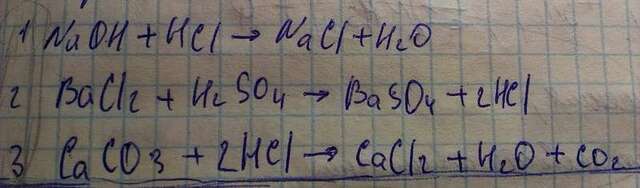 1 NaOH + HCl → NaCl + H2O
2 BaCl2 + H2SO4 → BaSO4 + 2HCl
3 CaCO3 + 2HCl → CaCl2 + H2O + CO2